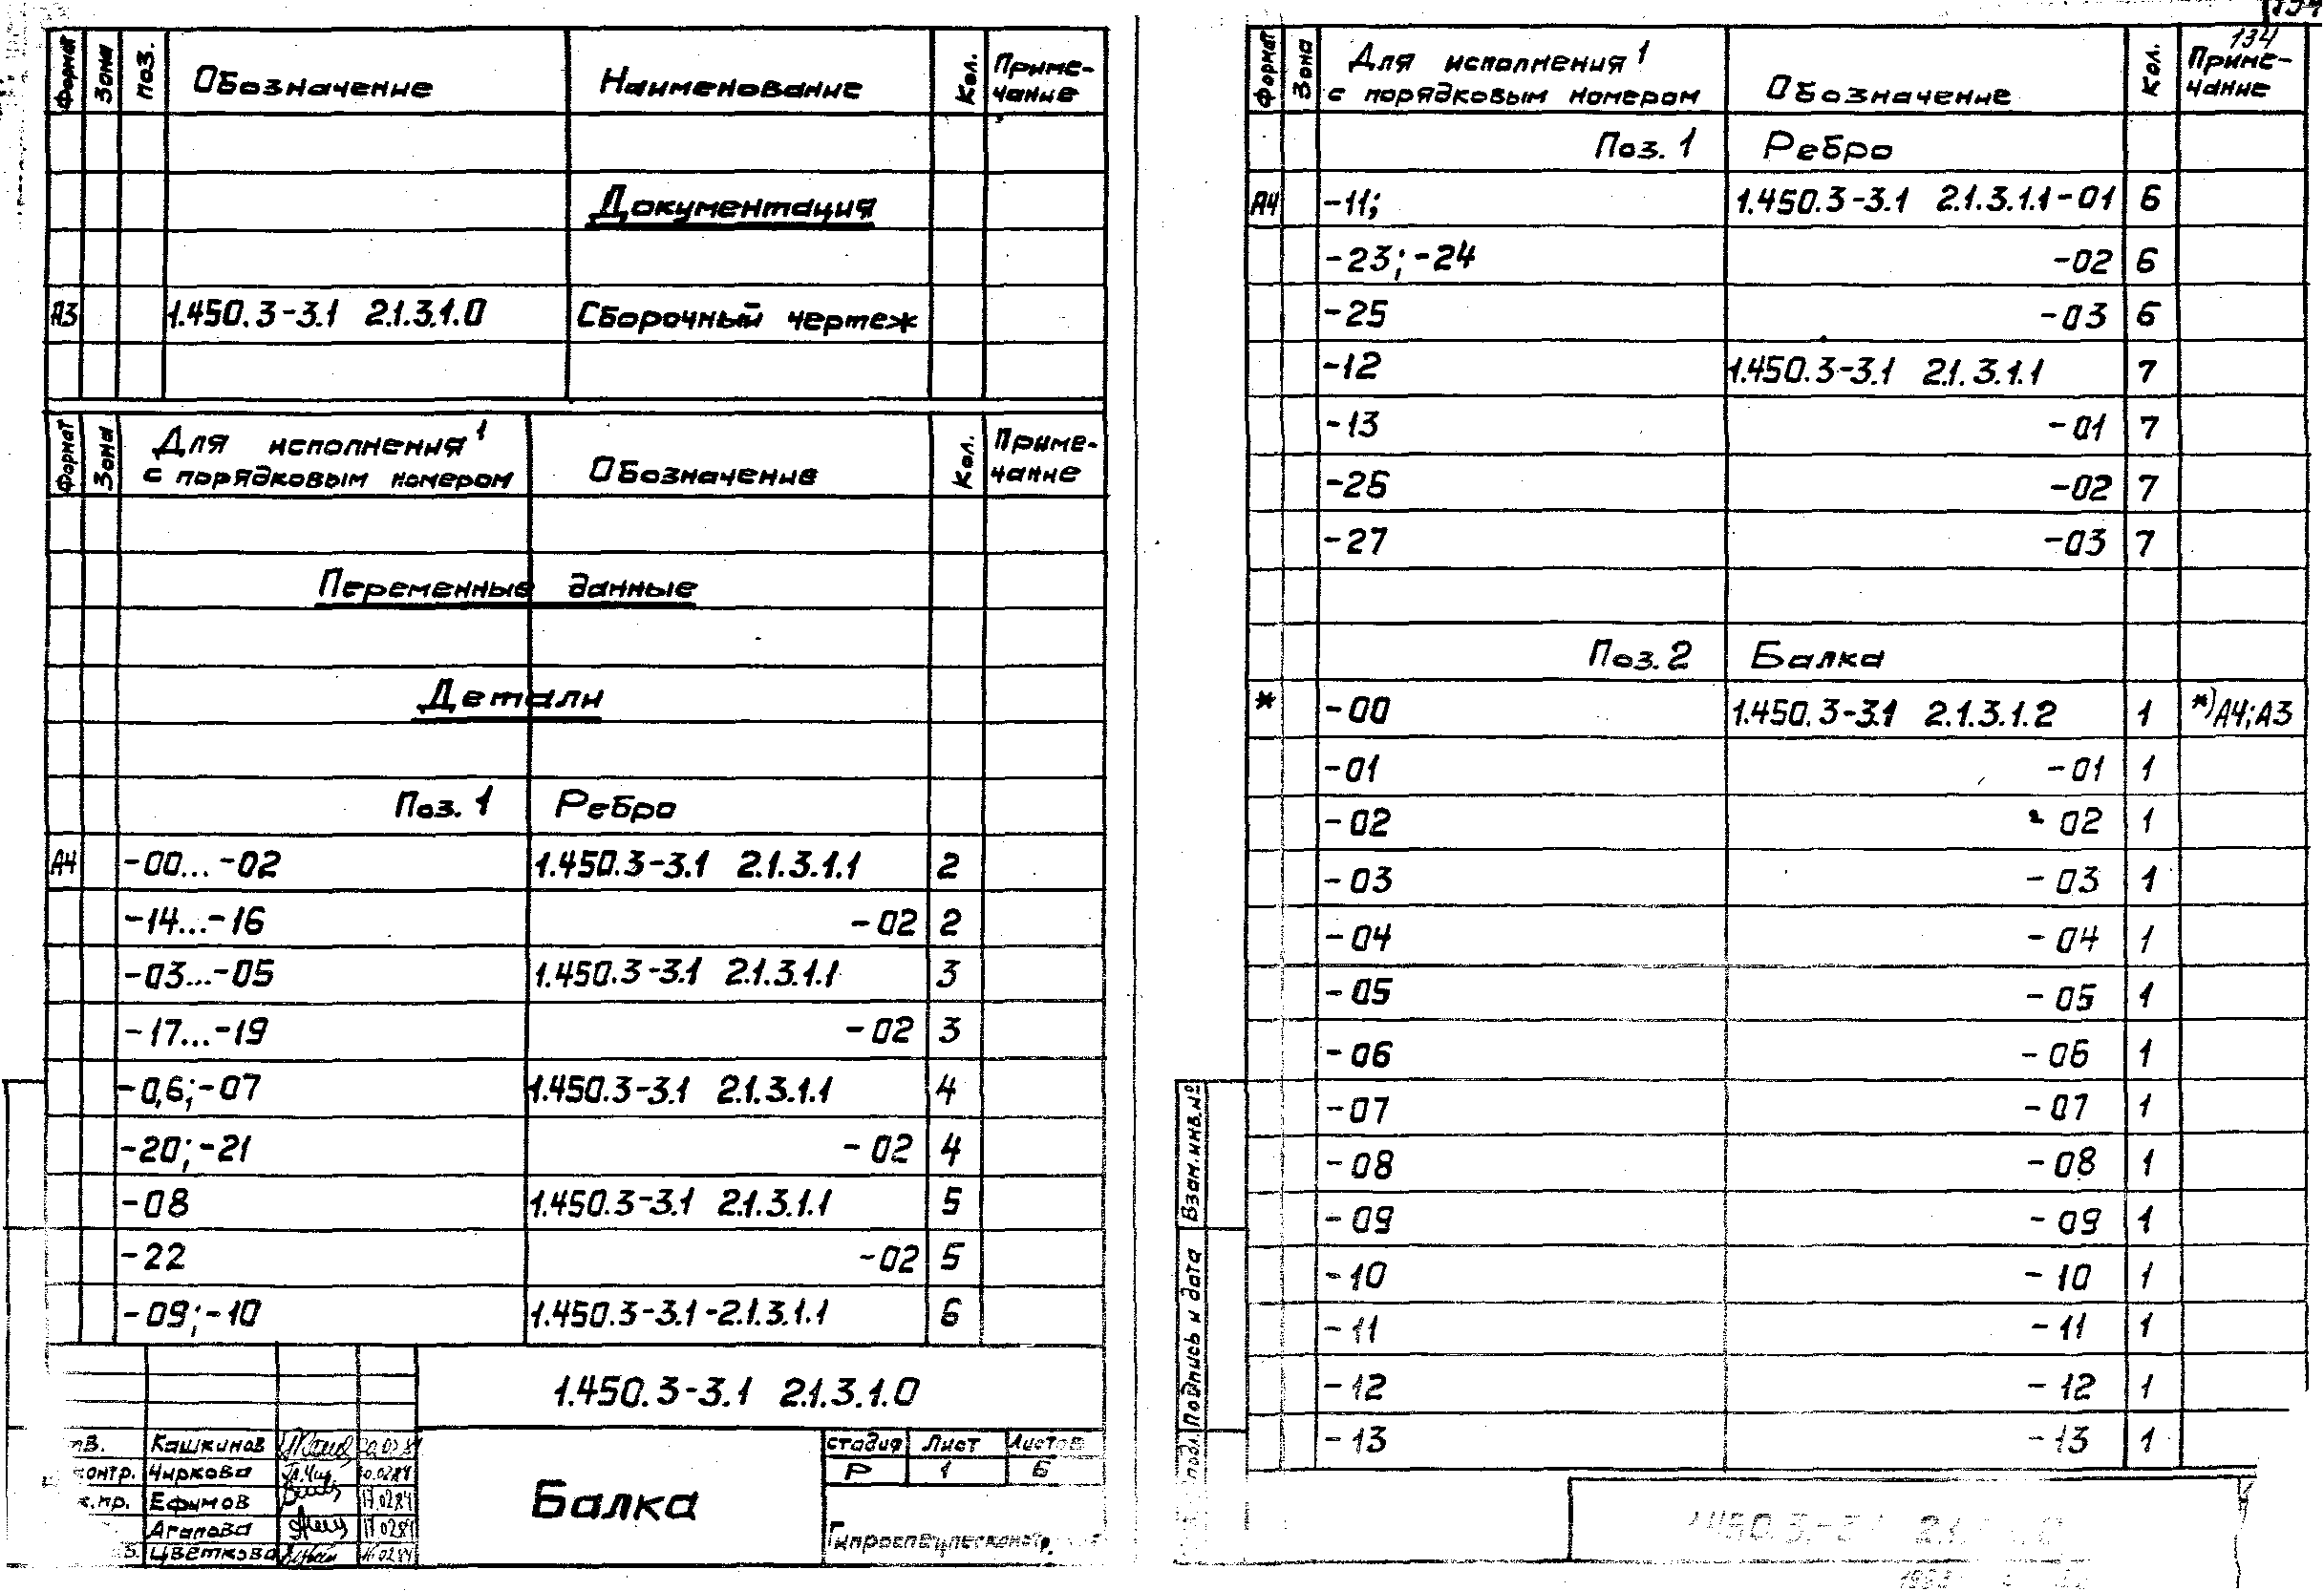 Формат Зона поз. Обозначение Наименование Кол. Приме-
чание
Документация
А3 1.450.3-3.1 2.1.3.1.0 Сборочный чертеж
Формат Зона Для исполнения¹
с порядковым номером Обозначение Кол. Приме-
чание
Переменные данные
Детали
Поз. 1 Ребро
А4 -00...-02 1.450.3-3.1 2.1.3.1.1 2
-14...-16 -02 2
-03...-05 1.450.3-3.1 2.1.3.1.1 3
-17...-19 -02 3
-0,6;-07 1.450.3-3.1 2.1.3.1.1 4
-20;-21 -02 4
-08 1.450.3-3.1 2.1.3.1.1 5
-22 -02 5
-09;-10 1.450.3-3.1-2.1.3.1.1 6
1.450.3-3.1 2.1.3.1.0
Кашкинов
контр. Чиркова
Ефимов 17.02.84
Агапова 17.02.84
Цветкова
Балка
стадия Лист Листов
Р 1 6
134
Формат Зона Для исполнения¹
с порядковым номером Обозначение Кол. Приме-
чание
Поз. 1 Ребро
А4 -11; 1.450.3-3.1 2.1.3.1.1-01 6
-23;-24 -02 6
-25 -03 6
-12 1.450.3-3.1 2.1.3.1.1 7
-13 -01 7
-26 -02 7
-27 -03 7
Поз. 2 Балка
* -00 1.450.3-3.1 2.1.3.1.2 1 *)А4;А3
-01 -01 1
-02 -02 1
-03 -03 1
-04 -04 1
-05 -05 1
-06 -06 1
-07 -07 1
-08 -08 1
-09 -09 1
-10 -10 1
-11 -11 1
-12 -12 1
-13 -13 1
Взам.инв.№
Подпись и дата
подл.